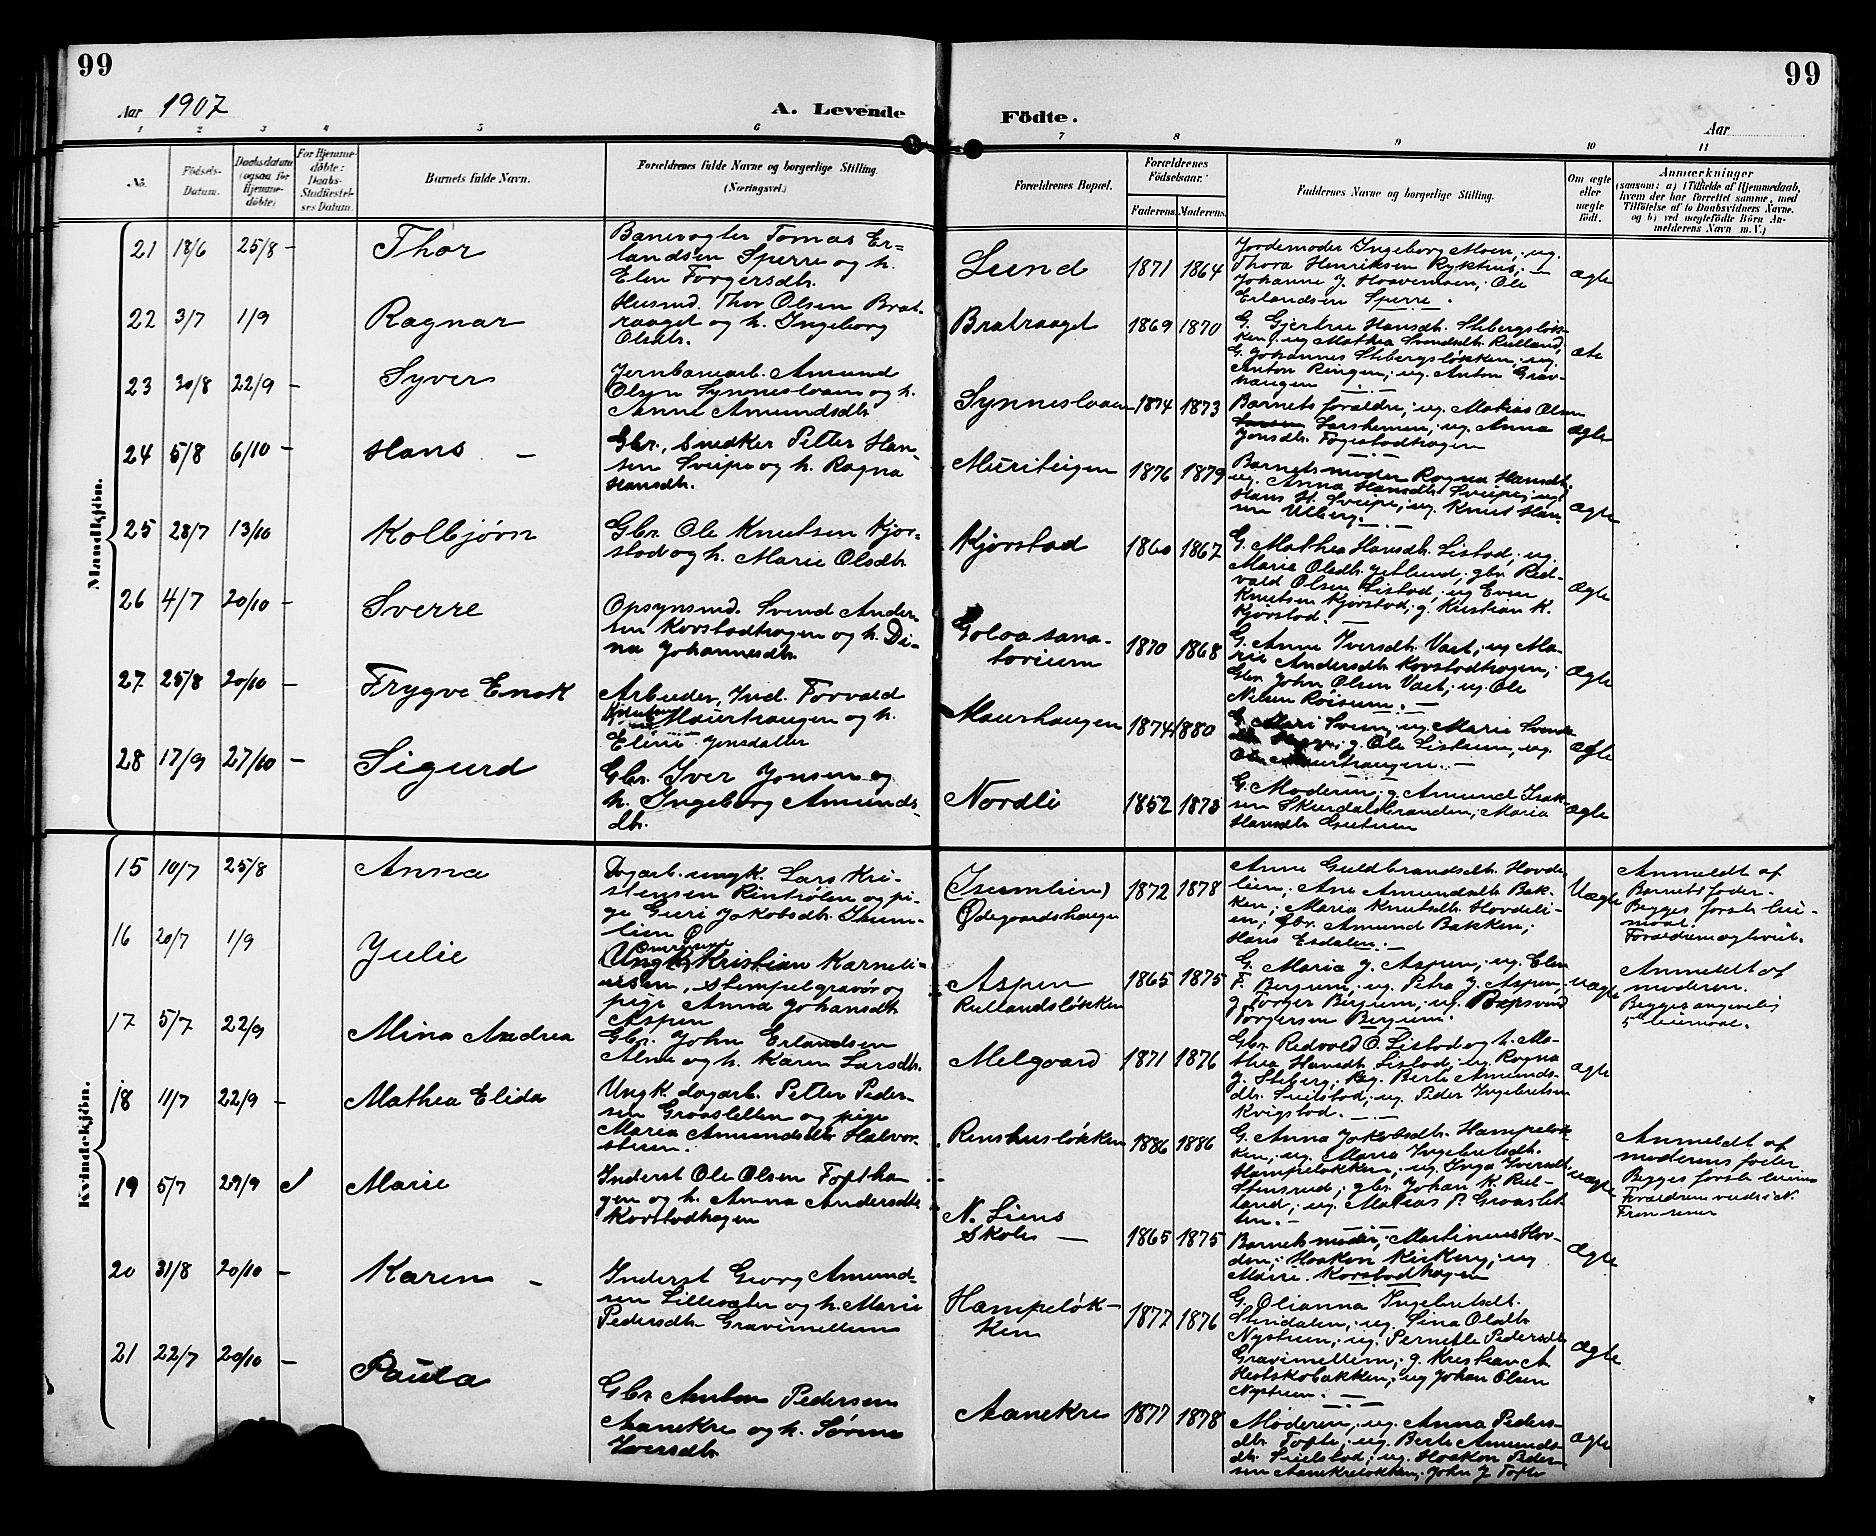 99
99
Aar 1907
A. Levende
Födte.
Aar
1 2 3 4 5 6 7 8 9 10 11
No.
Födsels-
Datum.
Daabsdatum
(ogsaa for
Hjemme-
döbte)
For Hjemme-
döbte:
Daabs-
Stadfæstel-
ses Datum.
Barnets fulde Navn.
Forældrenes fulde Navne og borgerlige Stilling.
(Næringsvei.)
Forældrenes Bopæl.
Forældrenes
Födselsaar.
Faderens.
Moderens.
Faddernes Navne og borgerlige Stilling.
Om ægte
eller
uægte
födt.
Anmærkninger
(saasom: a) i Tilfælde af Hjemmedaab,
hvem der har forrettet samme, med
Tilföielse af to Daabsvidners Navne.
og b) ved uægtefödte Börn An-
melderens Navn m. V.)
Mandkjön.
21 18/6 25/8 -
Thor
Banevogter Tomas Er-
landsen Sperre og h.
Elen Torgersdtr.
Lund
1871 1864
Jordemoder Ingeborg Moen; ug.
Thora Henriksen Rykhus; -
Johanne J. Haavensen; Ole
Erlandsen Sperre.
ægte
22 3/7 1/9
Ragnar
Husmd. Thor Olsen Brat-
raaget og h. Ingeborg
Olsdtr.
Bratraaget
1869 1870
G. Gjertrue Hansdtr. Stebergsløk-
ken; ug Mathea Svendsdtr. Rulland,
G. Johannes Stebergsløkken; ug
Anton Ringen; ug. Anton Grav-
haugen
23 30/8 22/9 -
Syver
Jernbanearb. Amund
Olsen Synneslaaen og h.
Anne Amundsdtr
Synneslaaen
1874 1873
Barnets forældre; ug. Matias Olsen
Larshemen; ug. Anna
Jonsdtr. Fogestadhagen
ægte
24 5/8 6/10 -
Hans -
Gbr., Snedker Petter Han-
sen Sveipe og h. Ragna
Hansdtr.
Muriteigen
1876 1879
Barnets moder Ragna Hansdtr.
ug. Anna Hansdtr Sveipe; ug
Hans H. Sveipe; ug. Knut Han-
sen Ulberg.
ægte
25 28/7 13/10
Kolbjørn
Gbr. Ole Knutsen Kjør-
stad og h. Marie Olsdtr.
Kjørstad
1860 1867
G. Mathea Hansdtr. Listad; ug.
Marie Olsdtr. Jetlund; gbr. Red-
vald Olsen Listad; ug Even
Knutsen Kjørstad; g. Kristian K.
Kjørstad.
ægte
26 4/7 20/10 -
Sverre
Opsynsmd. Svend Ander-
sen Korstadhagen og h. Di-
na Johannesdtr.
Golaa sana-
torium
1870 1868
G. Anne Iversdtr. Vast; ug Ma-
rie Andersdtr Korstadhagen;
Gbr. John Olsen Vast; ug. Ole
Nilsen Röisum.
ægte
27 25/8 20/10 -
Trygve Enok
Arbeider, Ind. Torvald
Maurhaugen og h.
Eline Jonsdatter
Maurhaugen
1874 1880
G. Mari Sveen; ug Marie Svends-
g. Ole Listuen; ug.
Maurhaugen.
ægte
28 17/9 27/10 -
Sigurd
Gbr. Iver Jonsen og
h. Ingeborg Amunds-
dtr.
Nordli
1852 1873
G. Moderen; g. Amund Isak-
sen Skurdalstranden; Maria
Hansdtr
ægte
Kvindekjön.
15 10/7 25/8
Anna
Dagarb. ungk. Lars Kri-
stensen Rintiølen og pi-
ge Guri Jakobsdtr. Isum-
lien
(Isumlien)
Ødegaardshaugen
1872 1878
Anne Guldbrandsdtr. Hovde-
lien; Ane Amundsdtr Bak-
ken; Maria Knutsdtr. Hovdeli-
en; Gbr. Amund Bakken;
Hans Esdalen.
Uægte
Anmeldt af
Barnets fader.
Begges første lei-
maal.
16 20/7 1/9
Julie
Ungk. Kristian Karneli-
usen, Stempelgravør og
pige Anna Johansdtr
Aspen
Aspen
Rullandsløkken
1865 1875
G. Maria J. Aspen; ug. Elen
F. Bergum; ug. Petra J. Aspen;
g Torger Bergum; ug.
Torgersen Bergum.
uægte
Anmeldt af
moderen.
Begges angivelig
5te leiermaal.
17 5/7 22/9
Mina Andrea
Gbr. John Erlandsen
Alme og h. Karen Larsdtr.
Melgaard
1871 1876
Gbr Redvold O. Listad og h. Ma-
thea Hansdtr. Listad; ug. Ragna
J. Steberg; Beg. Berte Amunds-
dtr. Suilstad; ug. Peder Ingebretsen
Kvigstad.
ægte
18 11/7 22/9 -
Mathea Elida
Ungk. dagarb. Petter Peder-
sen Graasletten og pige
Maria Amundsdtr Halvor-
stuen.
Renshusløkken
1886 1886
G. Anna Jakobsdtr. Hampeløk-
ken; ug. Maria Ingebretsdtr.
Hampeløkken; ug. Inga Iversdtr.
Stensrud; gbr. Johan K. Rul-
land; ug. Matias P. Graaslet-
ten.
uægte
Anmeldt af
moderens fader.
Begges første
19 5/7 29/9
Marie
Inderst Ole Olsen Toftha-
gen og h. Anna Andersdtr.
Korstadhagen
N. Liens
Skole -
1865 1875
Barnets moder; Martinus Hov-
den; Haakon Kirkeng; ug
Marie Korstadhagen
Ægte
20 31/8 20/10 -
Karen -
Inderst Georg Amund-
sen Lillesæter og h. Marie
Pedersdtr Gravimellem
Hampeløk-
ken
1877 1876
G. Olianna Ingebretsdtr.
Stendalen; ug. Sina Olsdtr
Nystuen; ug. Pernille Pedersdtr
Gravimellem; g. Kristian A.
Heolskobakken; ug Johan Olsen
Nystuen.
Ægte
21 22/7 20/10 -
Paula
Gbr. Anton Pedersen
Aanekre og h. Sørine
Iversdtr.
Aanekre
1877 1878
Moderen; ug. Anna Peders-
dtr. Tofte; ug. Berte Amunds-
dtr. Suilstad; ug. Haakon Peder-
sen Aanekreløkken; John J. Tofte
ægte